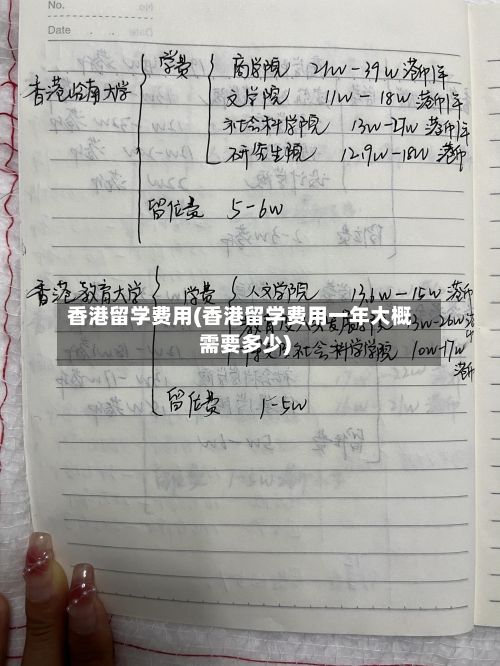 No.
Date
香港岭南大学
学费
商学院 21w-39w 港币/年
文学院 11w-18w 港币/年
社会科学院 13w-27w 港币/年
研究生院 12.9w-18w 港币
留位费 5-6w
香港教育大学
学费
人文学院 13.6w-15w 港币
13w-26w 港
社会科学学院 10w-17w 港币
留位费 1-5w
香港留学费用(香港留学费用一年大概
需要多少)